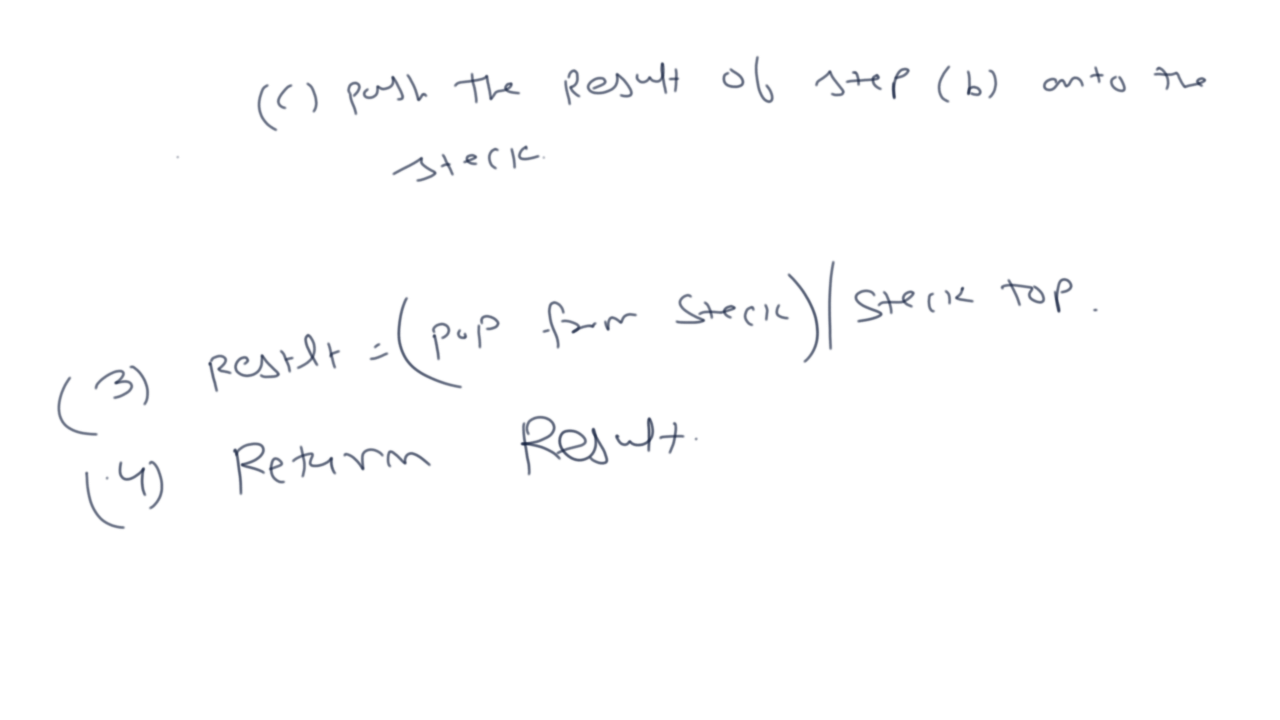 (c) push the Result of step (b) onto the
stack.
(3) Result = (pop from Stack) | Stack top.
(4) Return Result.